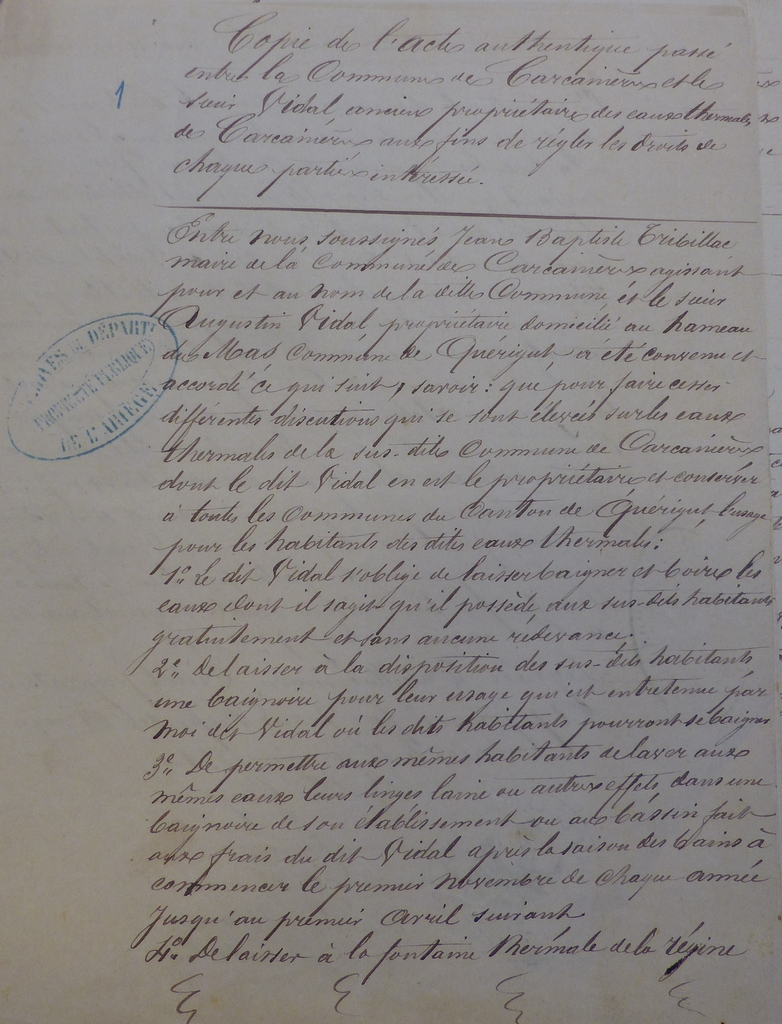 Copie de l'acte authentique passé
entre la Commune de Carcanières et le
sieur Vidal, ancien propriétaire des eaux thermales
de Carcanières aux fins de régler les droits de
chaque partie intéressée.
1
Entre nous soussignés Jean Baptiste Tribillac
maire de la Commune de Carcanières agissant
pour et au nom de la dille Commune et le sieur
Augustin Vidal propriétaire domicilié au hameau
du Mas commune de Quérigut, a été convenu et
accordé ce qui suit, savoir: que pour faire cesser
différentes discutions qui se sont élevées sur les eaux
thermales de la sus-dite Commune de Carcanières
dont le dit Vidal en est le propriétaire et conserver
à toutes les Communes du Canton de Quérigut l'usage
pour les habitants des dites eaux thermales:
1º Le dit Vidal s'oblige de laisser baigner et boire les
eaux dont il sagit qu'il possède, aux sus-dits habitants
gratuitement et sans aucune redevance.
2º De laisser à la disposition des sus-dits habitants
une baignoire pour leur usage qui est entretenue par
moi dit Vidal où les dits habitants pourront se baigner
3º De permettre aux mêmes habitants de laver aux
mêmes eaux leurs linges laine ou autres effets dans une
baignoire de son établissement ou au bassin fait
aux frais du dit Vidal après la saison des bains à
commencer le premier novembre de chaque année
Jusqu'au premier Avril suivant
4º De laisser à la fontaine thermale de la régine
ARCHIVES DU DÉPARTt
PROPRIÉTÉ PUBLIQUE
DE L'ARIÈGE